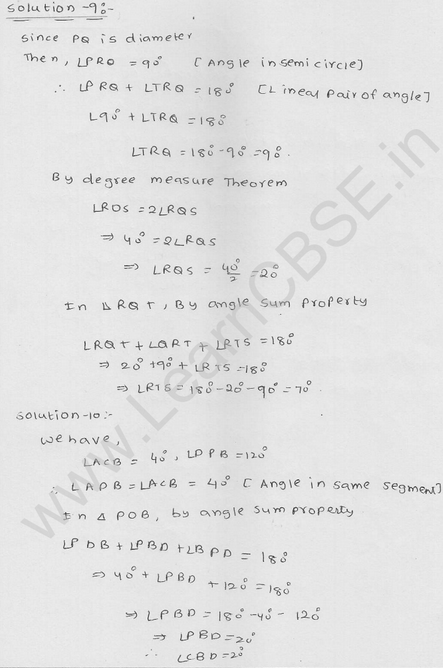 Solution -9:-
Since PQ is diameter
Then, ∠PRQ = 90° [Angle in semicircle]
∴ ∠PRQ + ∠TRQ = 180° [Lineal Pair of angle]
∠90° + ∠TRQ = 180°
∠TRQ = 180° - 90° = 90°.
By degree measure Theorem
∠ROS = 2∠RQS
⇒ 40° = 2∠RQS
⇒ ∠RQS = 40°/2 = 20°
In Δ RQT, By angle sum property
∠RQT + ∠QRT + ∠RTS = 180°
⇒ 20° + 90° + ∠RTS = 180°
⇒ ∠RTS = 180° - 20° - 90° = 70°.
Solution -10:-
We have,
∠ACB = 40°, ∠DPB = 120°
∴ ∠ADB = ∠ACB = 40° [Angle in same segment]
In Δ PDB, by angle sum property
∠PDB + ∠PBD + ∠BPD = 180°
⇒ 40° + ∠PBD + 120° = 180°
⇒ ∠PBD = 180° - 40° - 120°
⇒ ∠PBD = 20°
∴ ∠CBD = 20°
www.LearnCBSE.in